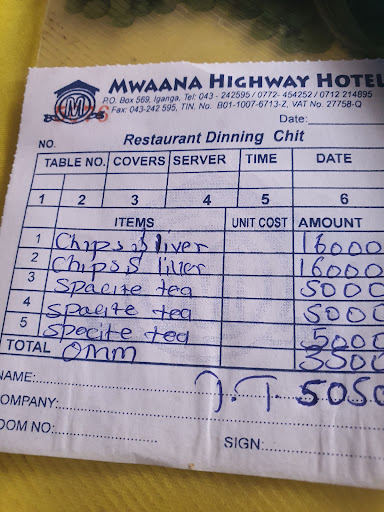 MWAANA HIGHWAY HOTEL
P.O. Box 569, Iganga, Tel: 043 - 242595 / 0772- 454252 / 0712 214895
Fax: 043-242 595, TIN. No. B01-1007-6713-Z, VAT No. 27758-Q
M
Date:
NO. Restaurant Dinning Chit
TABLE NO. COVERS SERVER TIME DATE
1 2 3 4 5 6
ITEMS UNIT COST AMOUNT
1 Chips s liver 16000
2 Chips s liver 16000
3 Spacite tea 5000
4 Spacite tea 5000
5 Specite tea 5000
TOTAL omm 3500
NAME: J.T. 5050
COMPANY:
ROOM NO: SIGN: